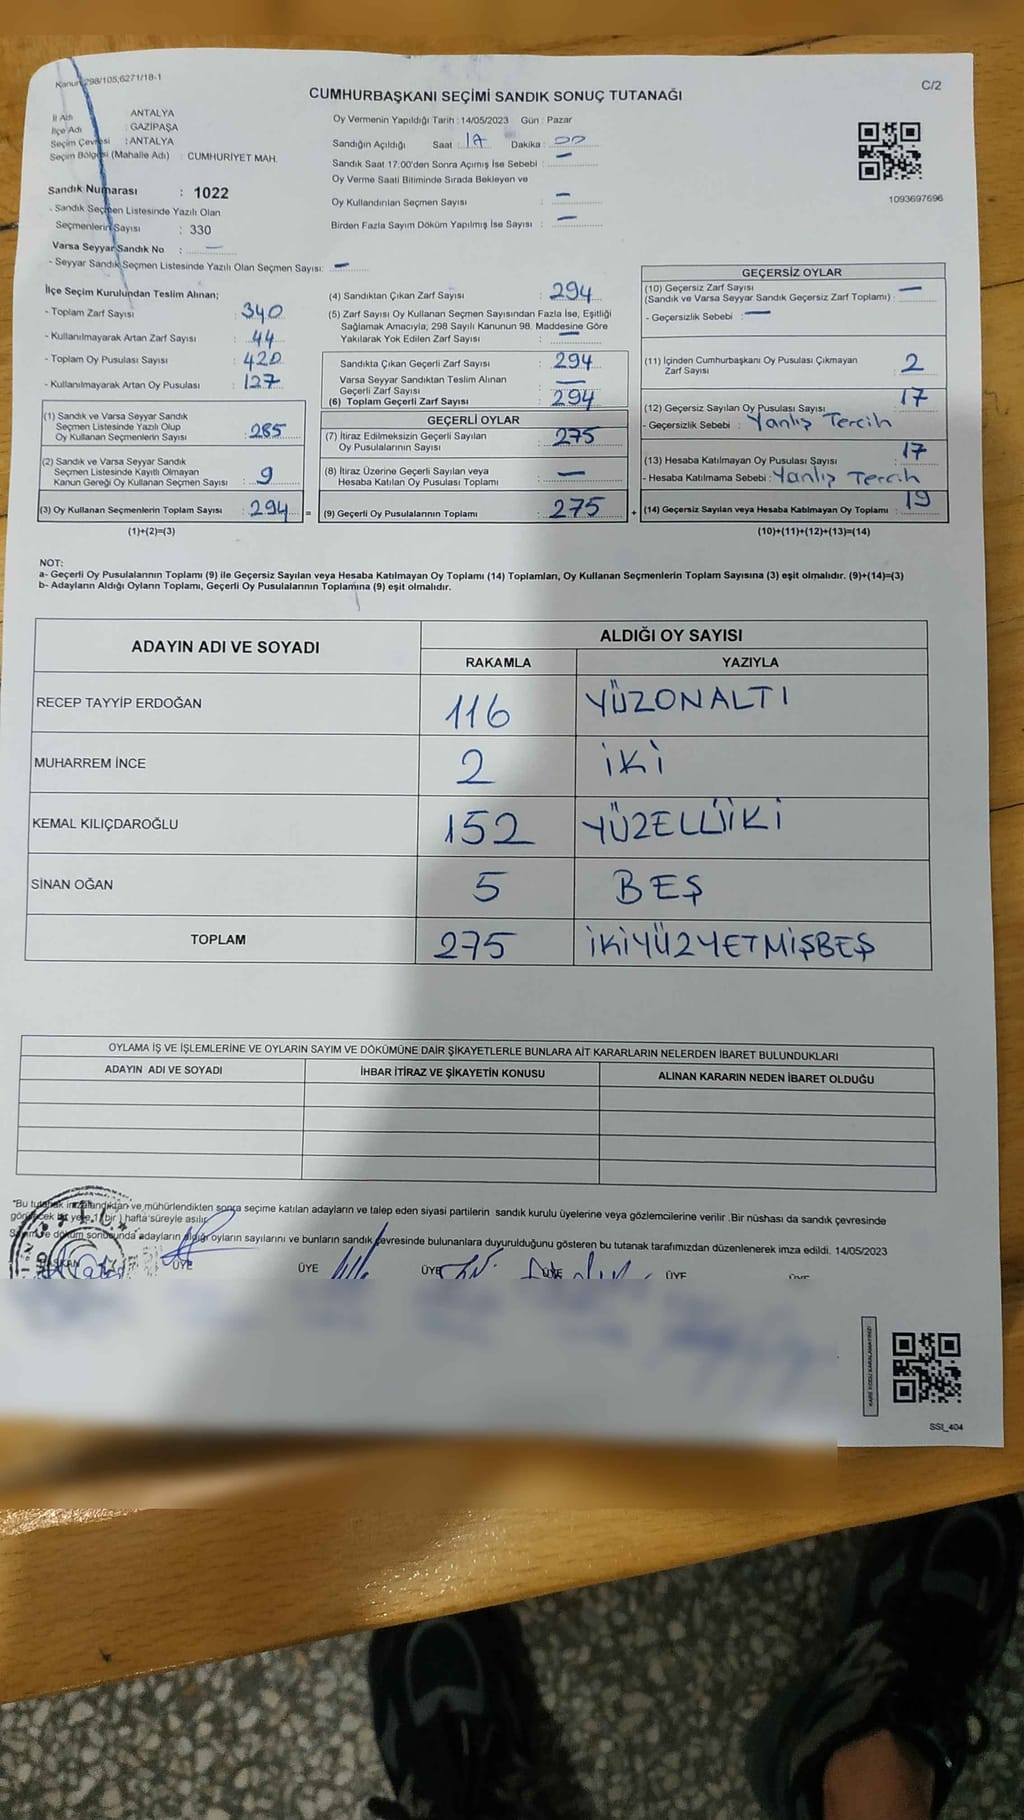 Kanun 298/105;6271/18-1
C/2
CUMHURBAŞKANI SEÇİMİ SANDIK SONUÇ TUTANAĞI
İl Adı ANTALYA
İlçe Adı : GAZİPAŞA
Seçim Çevresi : ANTALYA
Seçim Bölgesi (Mahalle Adı) : CUMHURİYET MAH.
Sandık Numarası : 1022
- Sandık Seçmen Listesinde Yazılı Olan
Seçmenlerin Sayısı : 330
Varsa Seyyar Sandık No : —
- Seyyar Sandık Seçmen Listesinde Yazılı Olan Seçmen Sayısı: —
Oy Vermenin Yapıldığı Tarih : 14/05/2023 Gün : Pazar
Sandığın Açıldığı Saat : 17 Dakika : 00
Sandık Saat 17:00'den Sonra Açımış İse Sebebi : —
Oy Verme Saati Bitiminde Sırada Bekleyen ve
Oy Kullandırılan Seçmen Sayısı : —
Birden Fazla Sayım Döküm Yapılmış İse Sayısı : —
1093697696
İlçe Seçim Kurulundan Teslim Alınan;
- Toplam Zarf Sayısı : 340
- Kullanılmayarak Artan Zarf Sayısı : 44
- Toplam Oy Pusulası Sayısı : 420
- Kullanılmayarak Artan Oy Pusulası : 127
(1) Sandık ve Varsa Seyyar Sandık
Seçmen Listesinde Yazılı Olup
Oy Kullanan Seçmenlerin Sayısı : 285
(2) Sandık ve Varsa Seyyar Sandık
Seçmen Listesinde Kayıtlı Olmayan
Kanun Gereği Oy Kullanan Seçmen Sayısı : 9
(3) Oy Kullanan Seçmenlerin Toplam Sayısı : 294 =
(1)+(2)=(3)
(4) Sandıktan Çıkan Zarf Sayısı : 294
(5) Zarf Sayısı Oy Kullanan Seçmen Sayısından Fazla İse, Eşitliği
Sağlamak Amacıyla; 298 Sayılı Kanunun 98. Maddesine Göre
Yakılarak Yok Edilen Zarf Sayısı : —
Sandıkta Çıkan Geçerli Zarf Sayısı : 294
Varsa Seyyar Sandıktan Teslim Alınan
Geçerli Zarf Sayısı : —
(6) Toplam Geçerli Zarf Sayısı : 294
GEÇERLİ OYLAR
(7) İtiraz Edilmeksizin Geçerli Sayılan
Oy Pusulasının Sayısı : 275
(8) İtiraz Üzerine Geçerli Sayılan veya
Hesaba Katılan Oy Pusulası Toplamı : —
(9) Geçerli Oy Pusulalarının Toplamı : 275 +
GEÇERSİZ OYLAR
(10) Geçersiz Zarf Sayısı —
(Sandık ve Varsa Seyyar Sandık Geçersiz Zarf Toplamı) :
- Geçersizlik Sebebi : —
(11) İçinden Cumhurbaşkanı Oy Pusulası Çıkmayan
Zarf Sayısı : 2
(12) Geçersiz Sayılan Oy Pusulası Sayısı : 17
- Geçersizlik Sebebi : Yanlış Tercih
(13) Hesaba Katılmayan Oy Pusulası Sayısı : 17
- Hesaba Katılmama Sebebi : Yanlış Tercih
(14) Geçersiz Sayılan veya Hesaba Katılmayan Oy Toplamı : 19
(10)+(11)+(12)+(13)=(14)
NOT:
a- Geçerli Oy Pusulalarının Toplamı (9) ile Geçersiz Sayılan veya Hesaba Katılmayan Oy Toplamı (14) Toplamları, Oy Kullanan Seçmenlerin Toplam Sayısına (3) eşit olmalıdır. (9)+(14)=(3)
b- Adayların Aldığı Oyların Toplamı, Geçerli Oy Pusulalarının Toplamına (9) eşit olmalıdır.
ADAYIN ADI VE SOYADI
ALDIĞI OY SAYISI
RAKAMLA YAZIYLA
RECEP TAYYİP ERDOĞAN 116 YÜZONALTI
MUHARREM İNCE 2 İKİ
KEMAL KILIÇDAROĞLU 152 YÜZELLİİKİ
SİNAN OĞAN 5 BEŞ
TOPLAM 275 İKİYÜZYETMİŞBEŞ
OYLAMA İŞ VE İŞLEMLERİNE VE OYLARIN SAYIM VE DÖKÜMÜNE DAİR ŞİKAYETLERLE BUNLARA AİT KARARLARIN NELERDEN İBARET BULUNDUKLARI
ADAYIN ADI VE SOYADI İHBAR İTİRAZ VE ŞİKAYETİN KONUSU ALINAN KARARIN NEDEN İBARET OLDUĞU
"Bu tutanak imzalandıktan ve mühürlendikten sonra seçime katılan adayların ve talep eden siyasi partilerin sandık kurulu üyelerine veya gözlemcilerine verilir .Bir nüshası da sandık çevresinde
görülecek bir yere,1 (bir ) hafta süreyle asılır
Sayım ve döküm sonucunda adayların aldığı oyların sayılarını ve bunların sandık çevresinde bulunanlara duyurulduğunu gösteren bu tutanak tarafımızdan düzenlenerek imza edildi. 14/05/2023
BAŞKAN ÜYE ÜYE ÜYE ÜYE ÜYE ÜYE
KARE KODU KARALAMAYINIZ!
SSI_404